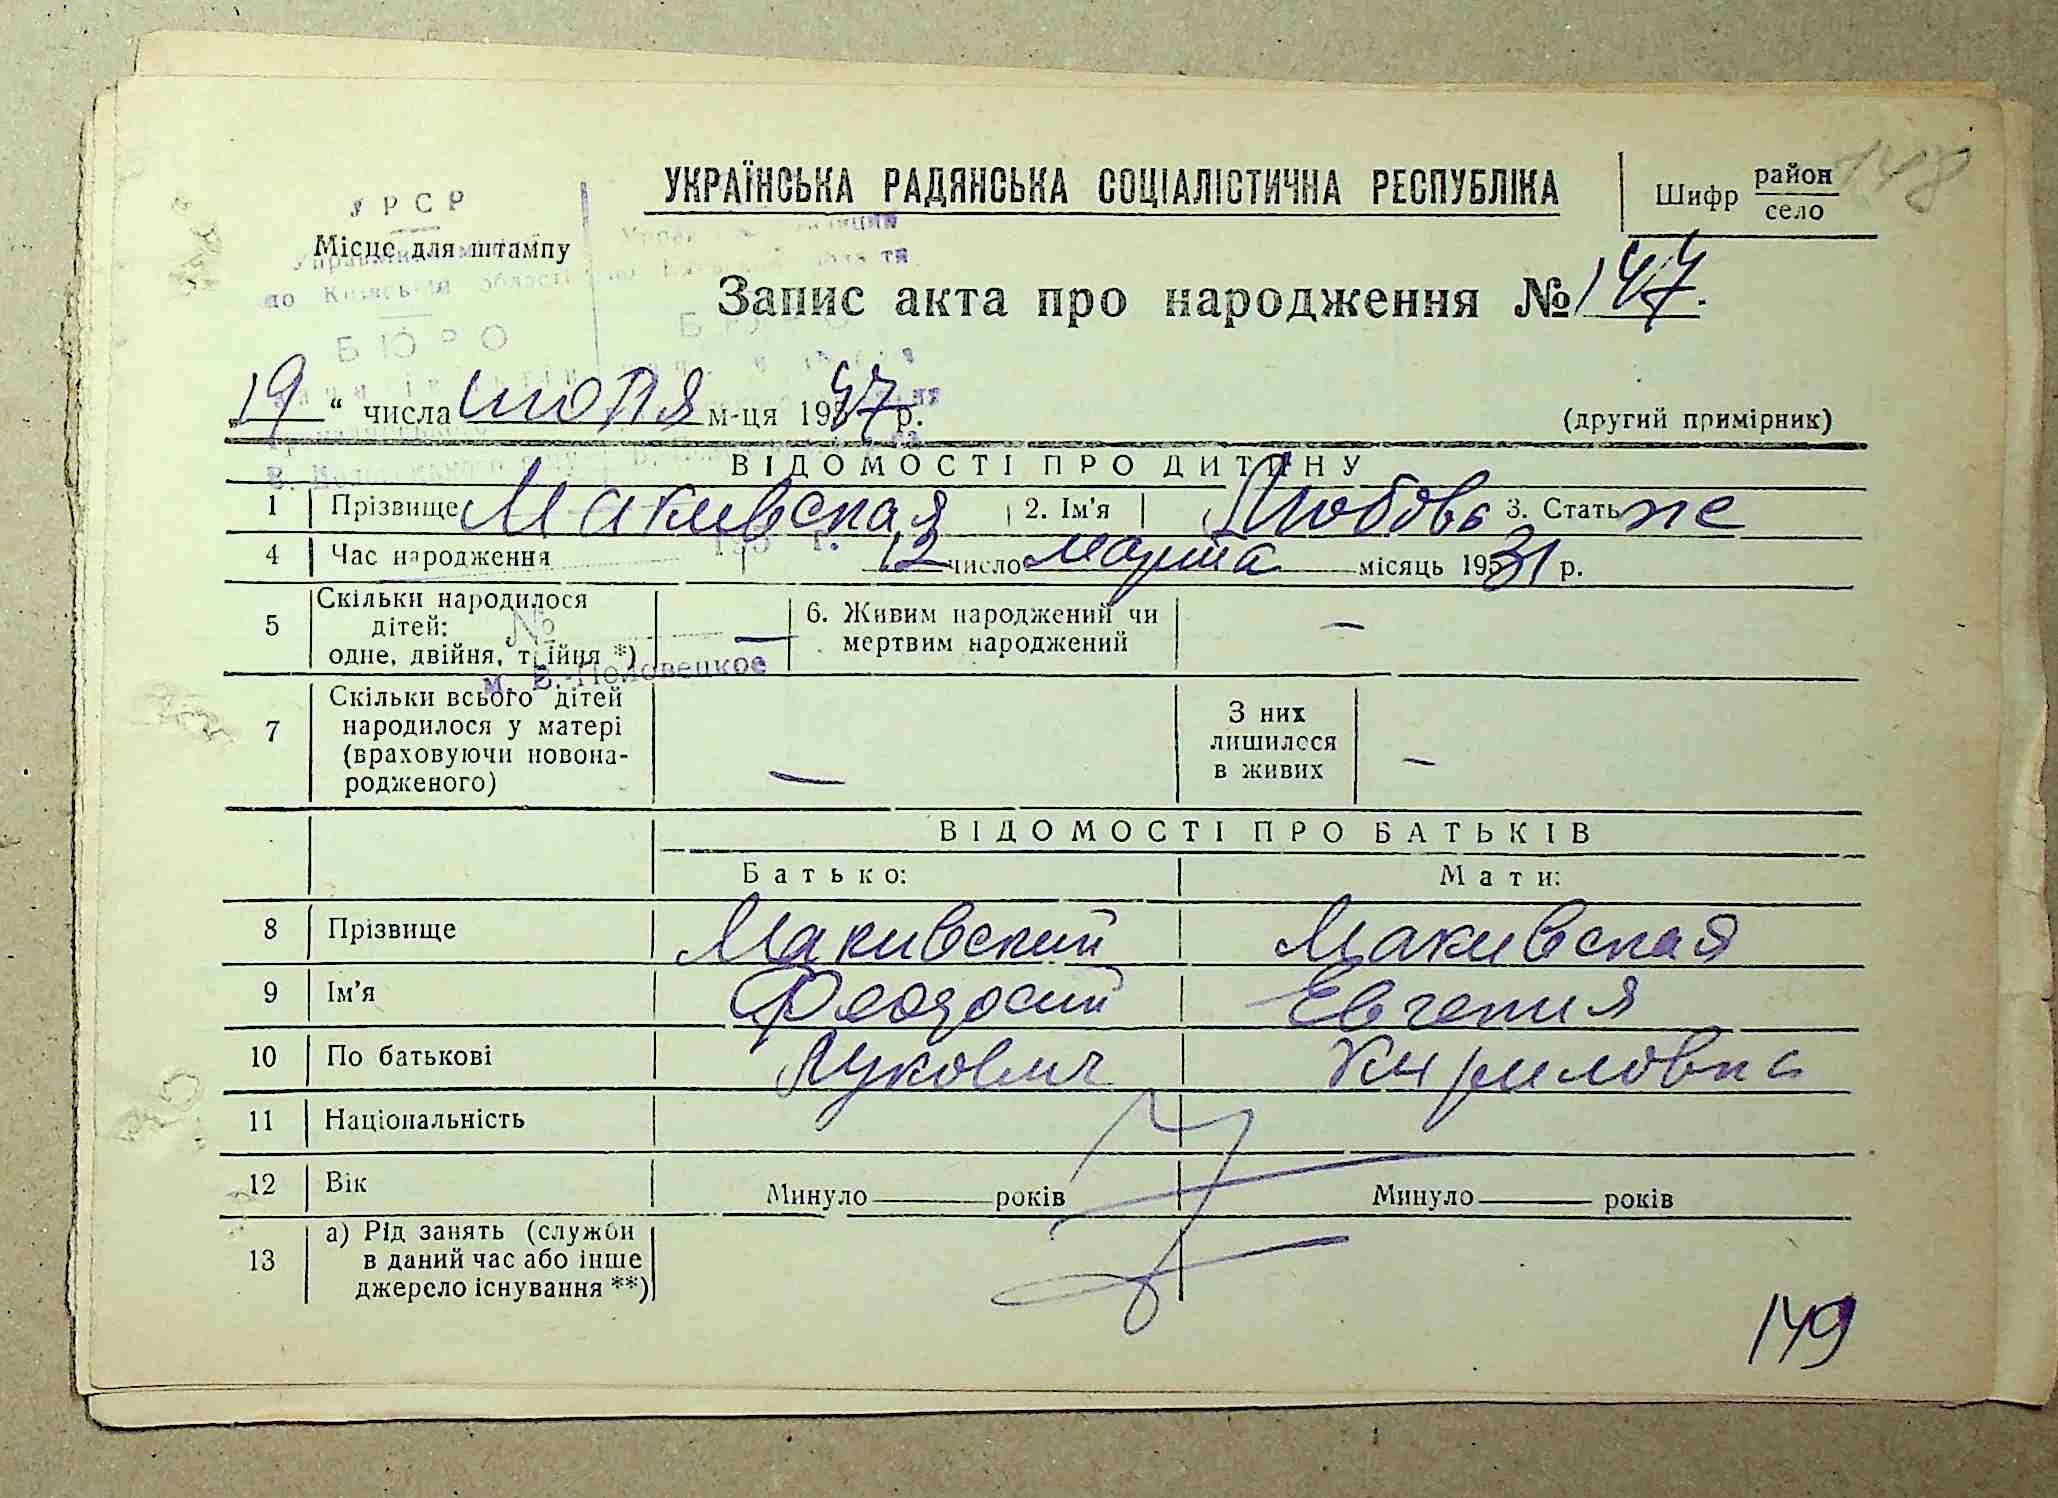 УКРАЇНСЬКА РАДЯНСЬКА СОЦІАЛІСТИЧНА РЕСПУБЛІКА
Шифр район
село
148
УРСР
Місце для штампу
по Київській області
БЮРО
Запис акта про народження № 147.
„19“ числа июля м-ця 1947 р.
(другий примірник)
ВІДОМОСТІ ПРО ДИТИНУ
1 Прізвище Макивская 2. Ім'я Любовь 3. Стать же
4 Час народження 12 число марта місяць 1931 р.
5 Скільки народилося дітей: одне, двійня, трійня *) — 6. Живим народжений чи мертвим народжений —
№
м. В.-Половецкое
7 Скільки всього дітей народилося у матері (враховуючи новонародженого) — З них лишилося в живих —
ВІДОМОСТІ ПРО БАТЬКІВ
Батько: Мати:
8 Прізвище Макивский Макивская
9 Ім'я Феодосий Евгения
10 По батькові Лукович Кириловна
11 Національність
12 Вік Минуло —— років Минуло —— років
13 а) Рід занять (служби в даний час або інше джерело існування **)
149